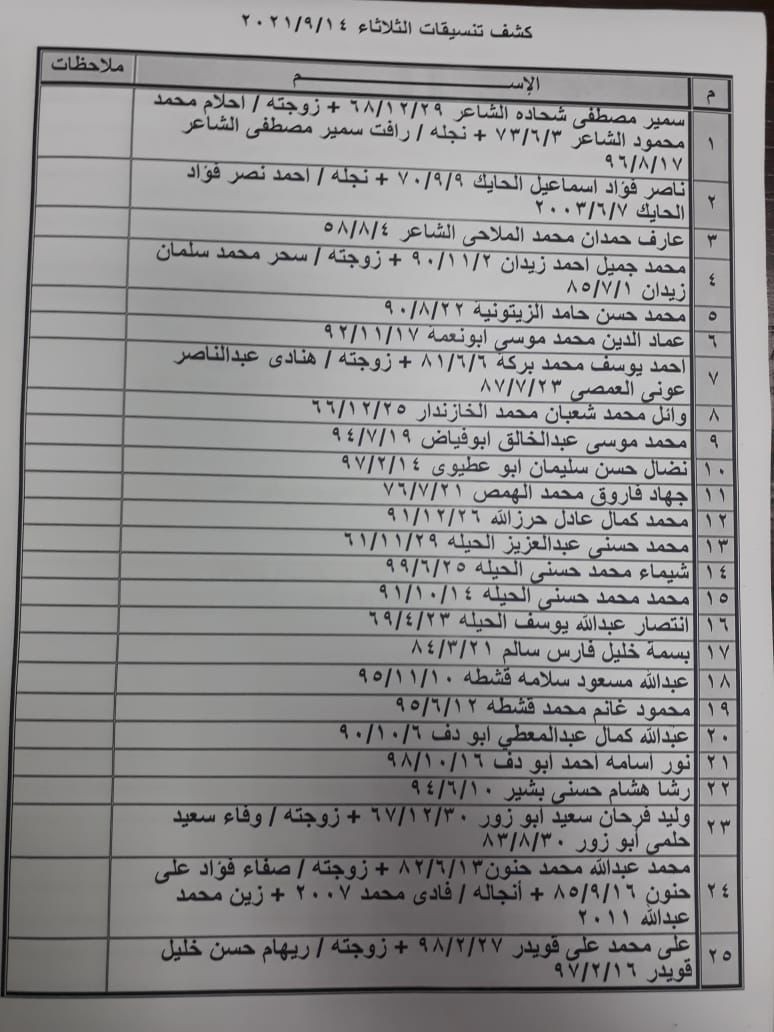 كشف تنسيقات الثلاثاء ٢٠٢١/٩/١٤
م الإســـــــــم ملاحظات
١ سمير مصطفى شحاده الشاعر ٦٨/١٢/٢٩ + زوجته / احلام محمد
محمود الشاعر ٧٣/٦/٣ + نجله / رافت سمير مصطفى الشاعر
٩٦/٨/١٧
٢ ناصر فؤاد اسماعيل الحايك ٧٠/٩/٩ + نجله / احمد نصر فؤاد
الحايك ٢٠٠٣/٦/٧
٣ عارف حمدان محمد الملاحى الشاعر ٥٨/٨/٤
٤ محمد جميل احمد زيدان ٩٠/١١/٢ + زوجته / سحر محمد سلمان
زيدان ٨٥/٧/١
٥ محمد حسن حامد الزيتونية ٩٠/٨/٢٢
٦ عماد الدين محمد موسى ابونعمة ٩٢/١١/١٧
٧ احمد يوسف محمد بركة ٨١/٦/٦ + زوجته / هنادى عبدالناصر
عوني العمصي ٨٧/٧/٢٣
٨ وائل محمد شعبان محمد الخازندار ٦٦/١٢/٢٥
٩ محمد موسى عبدالخالق ابوفياض ٩٤/٧/١٩
١٠ نضال حسن سليمان ابو عطيوى ٩٧/٢/١٤
١١ جهاد فاروق محمد الهمص ٧٦/٧/٢١
١٢ محمد كمال عادل حرزالله ٩١/١٢/٢٦
١٣ محمد حسنى عبدالعزيز الحيله ٦١/١١/٢٩
١٤ شيماء محمد حسنى الحيله ٩٩/٦/٢٥
١٥ محمد محمد حسنى الحيله ٩١/١٠/١٤
١٦ انتصار عبدالله يوسف الحيله ٦٩/٤/٢٣
١٧ بسمة خليل فارس سالم ٨٤/٣/٢١
١٨ عبدالله مسعود سلامه قشطه ٩٥/١١/١٠
١٩ محمود غانم محمد قشطه ٩٥/٦/١٢
٢٠ عبدالله كمال عبدالمعطي ابو دف ٩٠/١٠/٦
٢١ نور اسامه احمد ابو دف ٩٨/١٠/١٦
٢٢ رشا هشام حسنى بشير ٩٤/٦/١٠
٢٣ وليد فرحان سعيد ابو زور ٦٧/١٢/٣٠ + زوجته / وفاء سعيد
حلمى أبو زور ٨٣/٨/٣٠
٢٤ محمد عبدالله محمد حنون ٨٢/٦/١٣ + زوجته / صفاء فؤاد على
حنون ٨٥/٩/١٦ + أنجاله / فادى محمد ٢٠٠٧ + زين محمد
عبدالله ٢٠١١
٢٥ على محمد على قويدر ٩٨/٢/٢٧ + زوجته / ريهام حسن خليل
قويدر ٩٧/٢/١٦